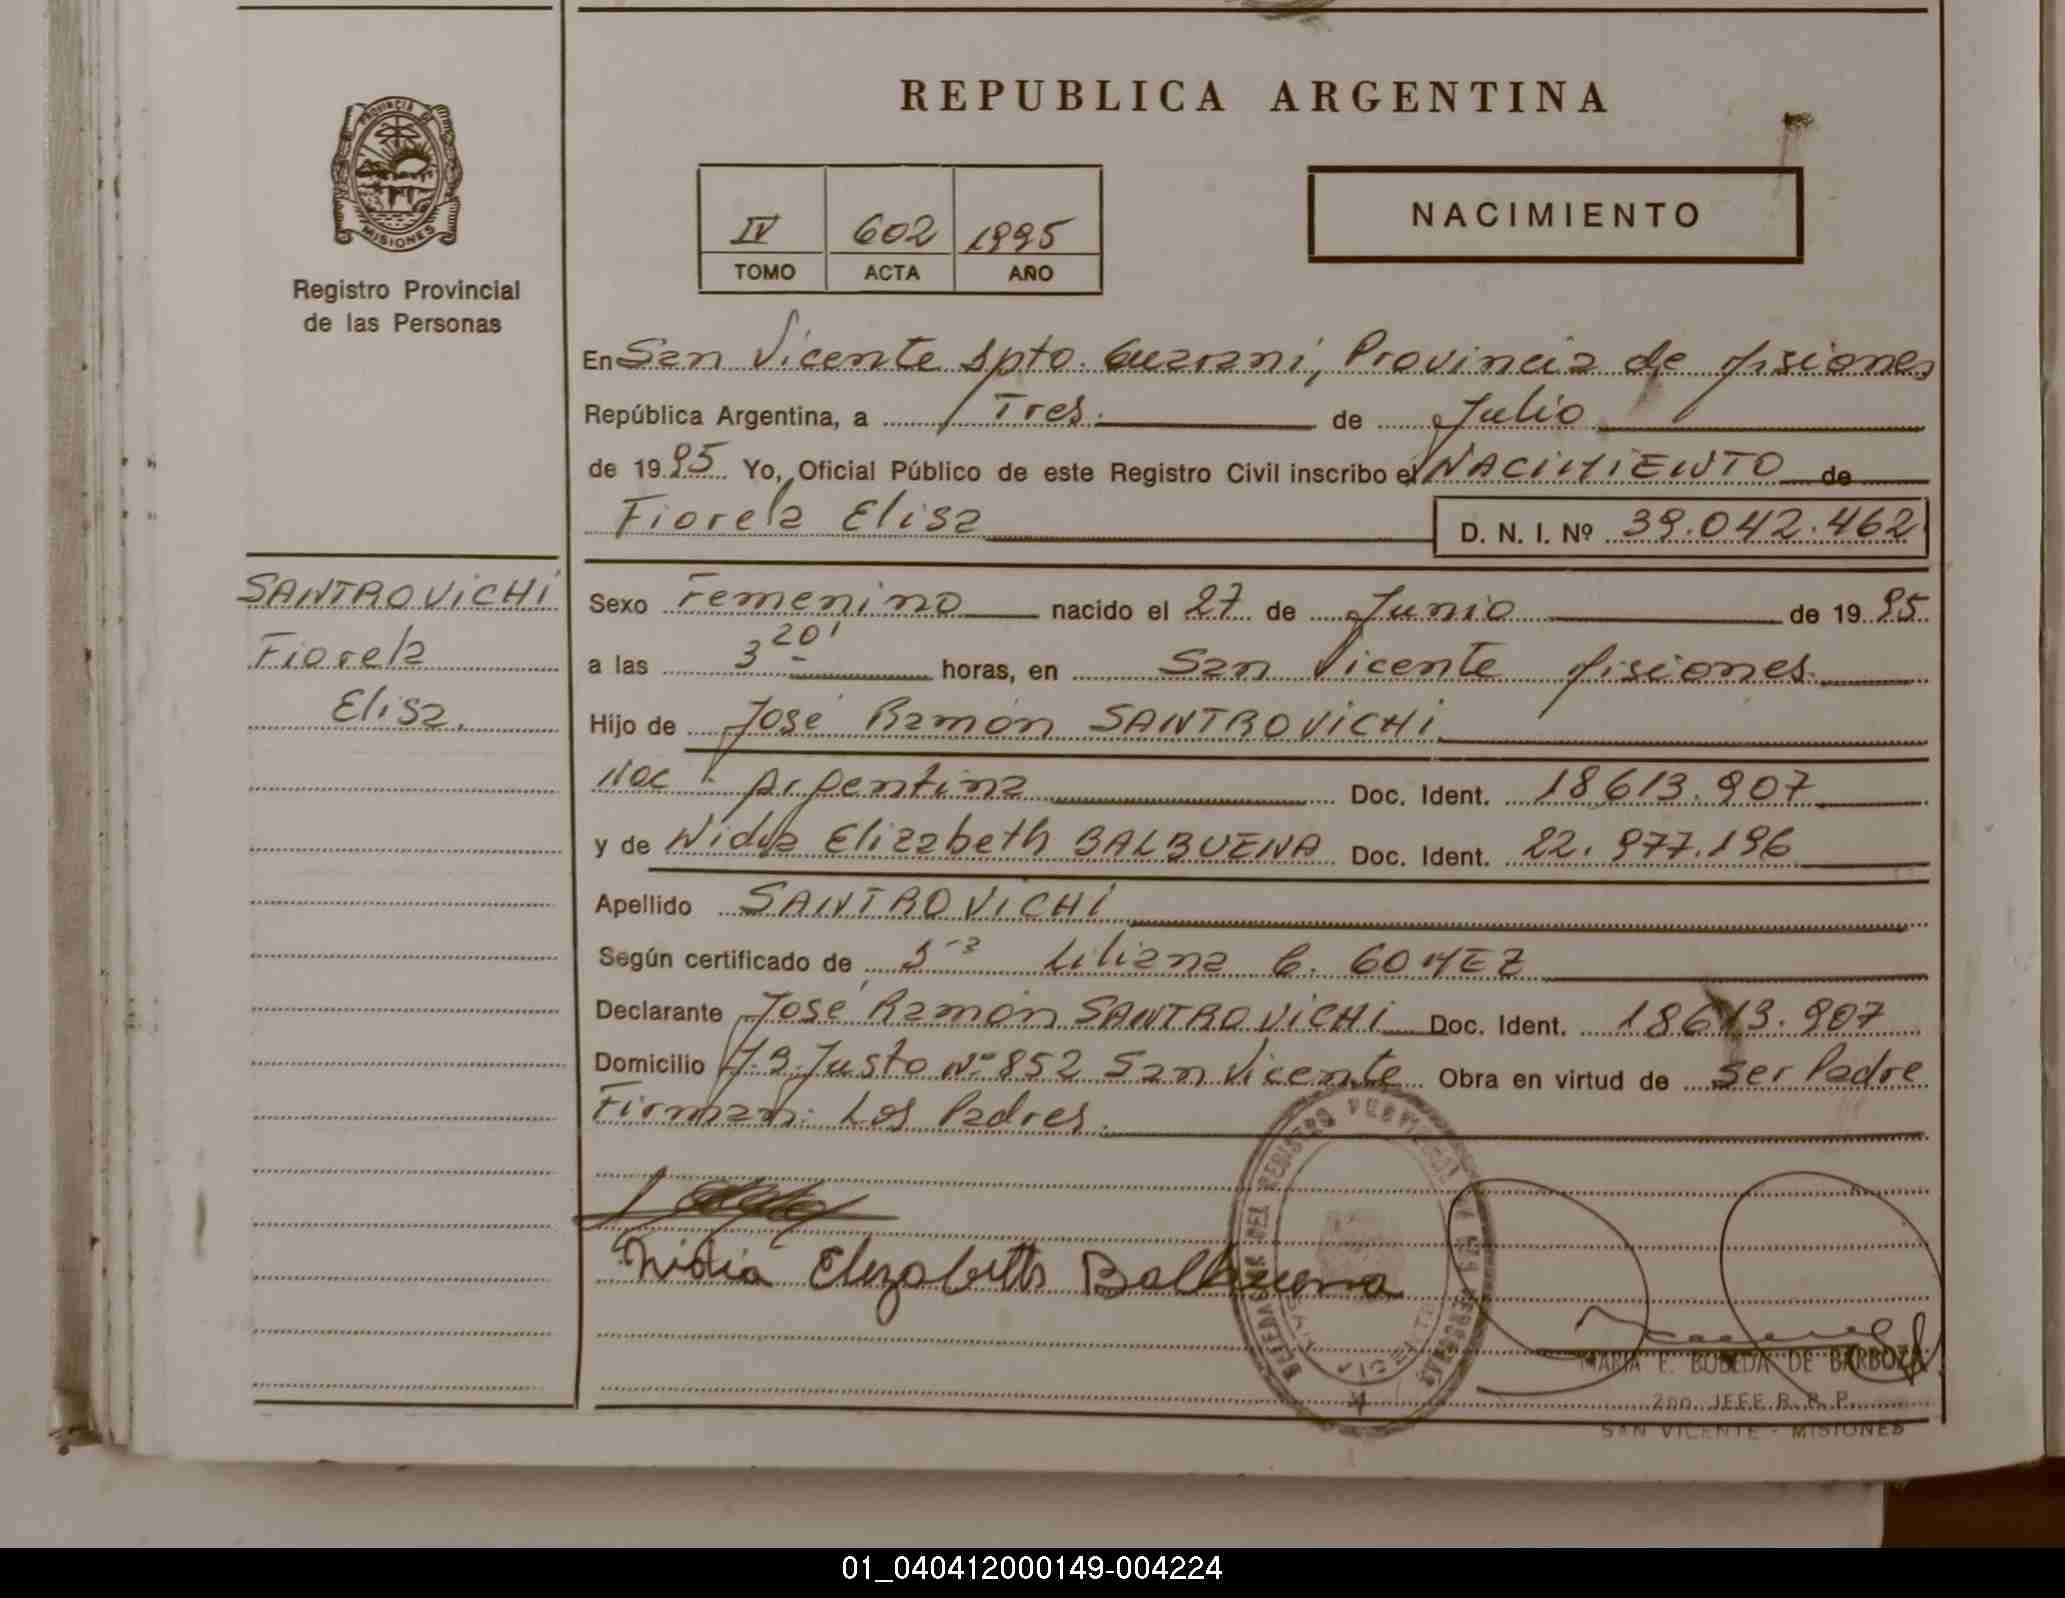 REPUBLICA ARGENTINA
PROVINCIA DE
MISIONES
Registro Provincial
de las Personas
IV 602 1995
TOMO ACTA AÑO
NACIMIENTO
En San Vicente Dpto. Guaraní, Provincia de Misiones
República Argentina, a Tres. de Julio
de 1995 Yo, Oficial Público de este Registro Civil inscribo el NACIMIENTO de
Fiorela Elisa D. N. I. Nº 39.042.462
SANTROVICHI
Fiorela
Elisa.
Sexo Femenino nacido el 27 de Junio de 1995
a las 3 20' horas, en San Vicente Misiones.
Hijo de José Ramón SANTROVICHI
Nac. Argentina Doc. Ident. 18613.907
y de Nidia Elizabeth BALBUENA Doc. Ident. 22.977.196
Apellido SANTROVICHI
Según certificado de Liliana G. GOMEZ
Declarante José Ramón SANTROVICHI Doc. Ident. 18613.907
Domicilio J.B. Justo Nº 852 San Vicente Obra en virtud de Ser Padre
Firman: Los Padres.
Nidia Elizabeth Balbuena
MARIA E. BOBEDA DE BARBOZA
2DO. JEFE R. P. P.
SAN VICENTE - MISIONES
01_040412000149-004224